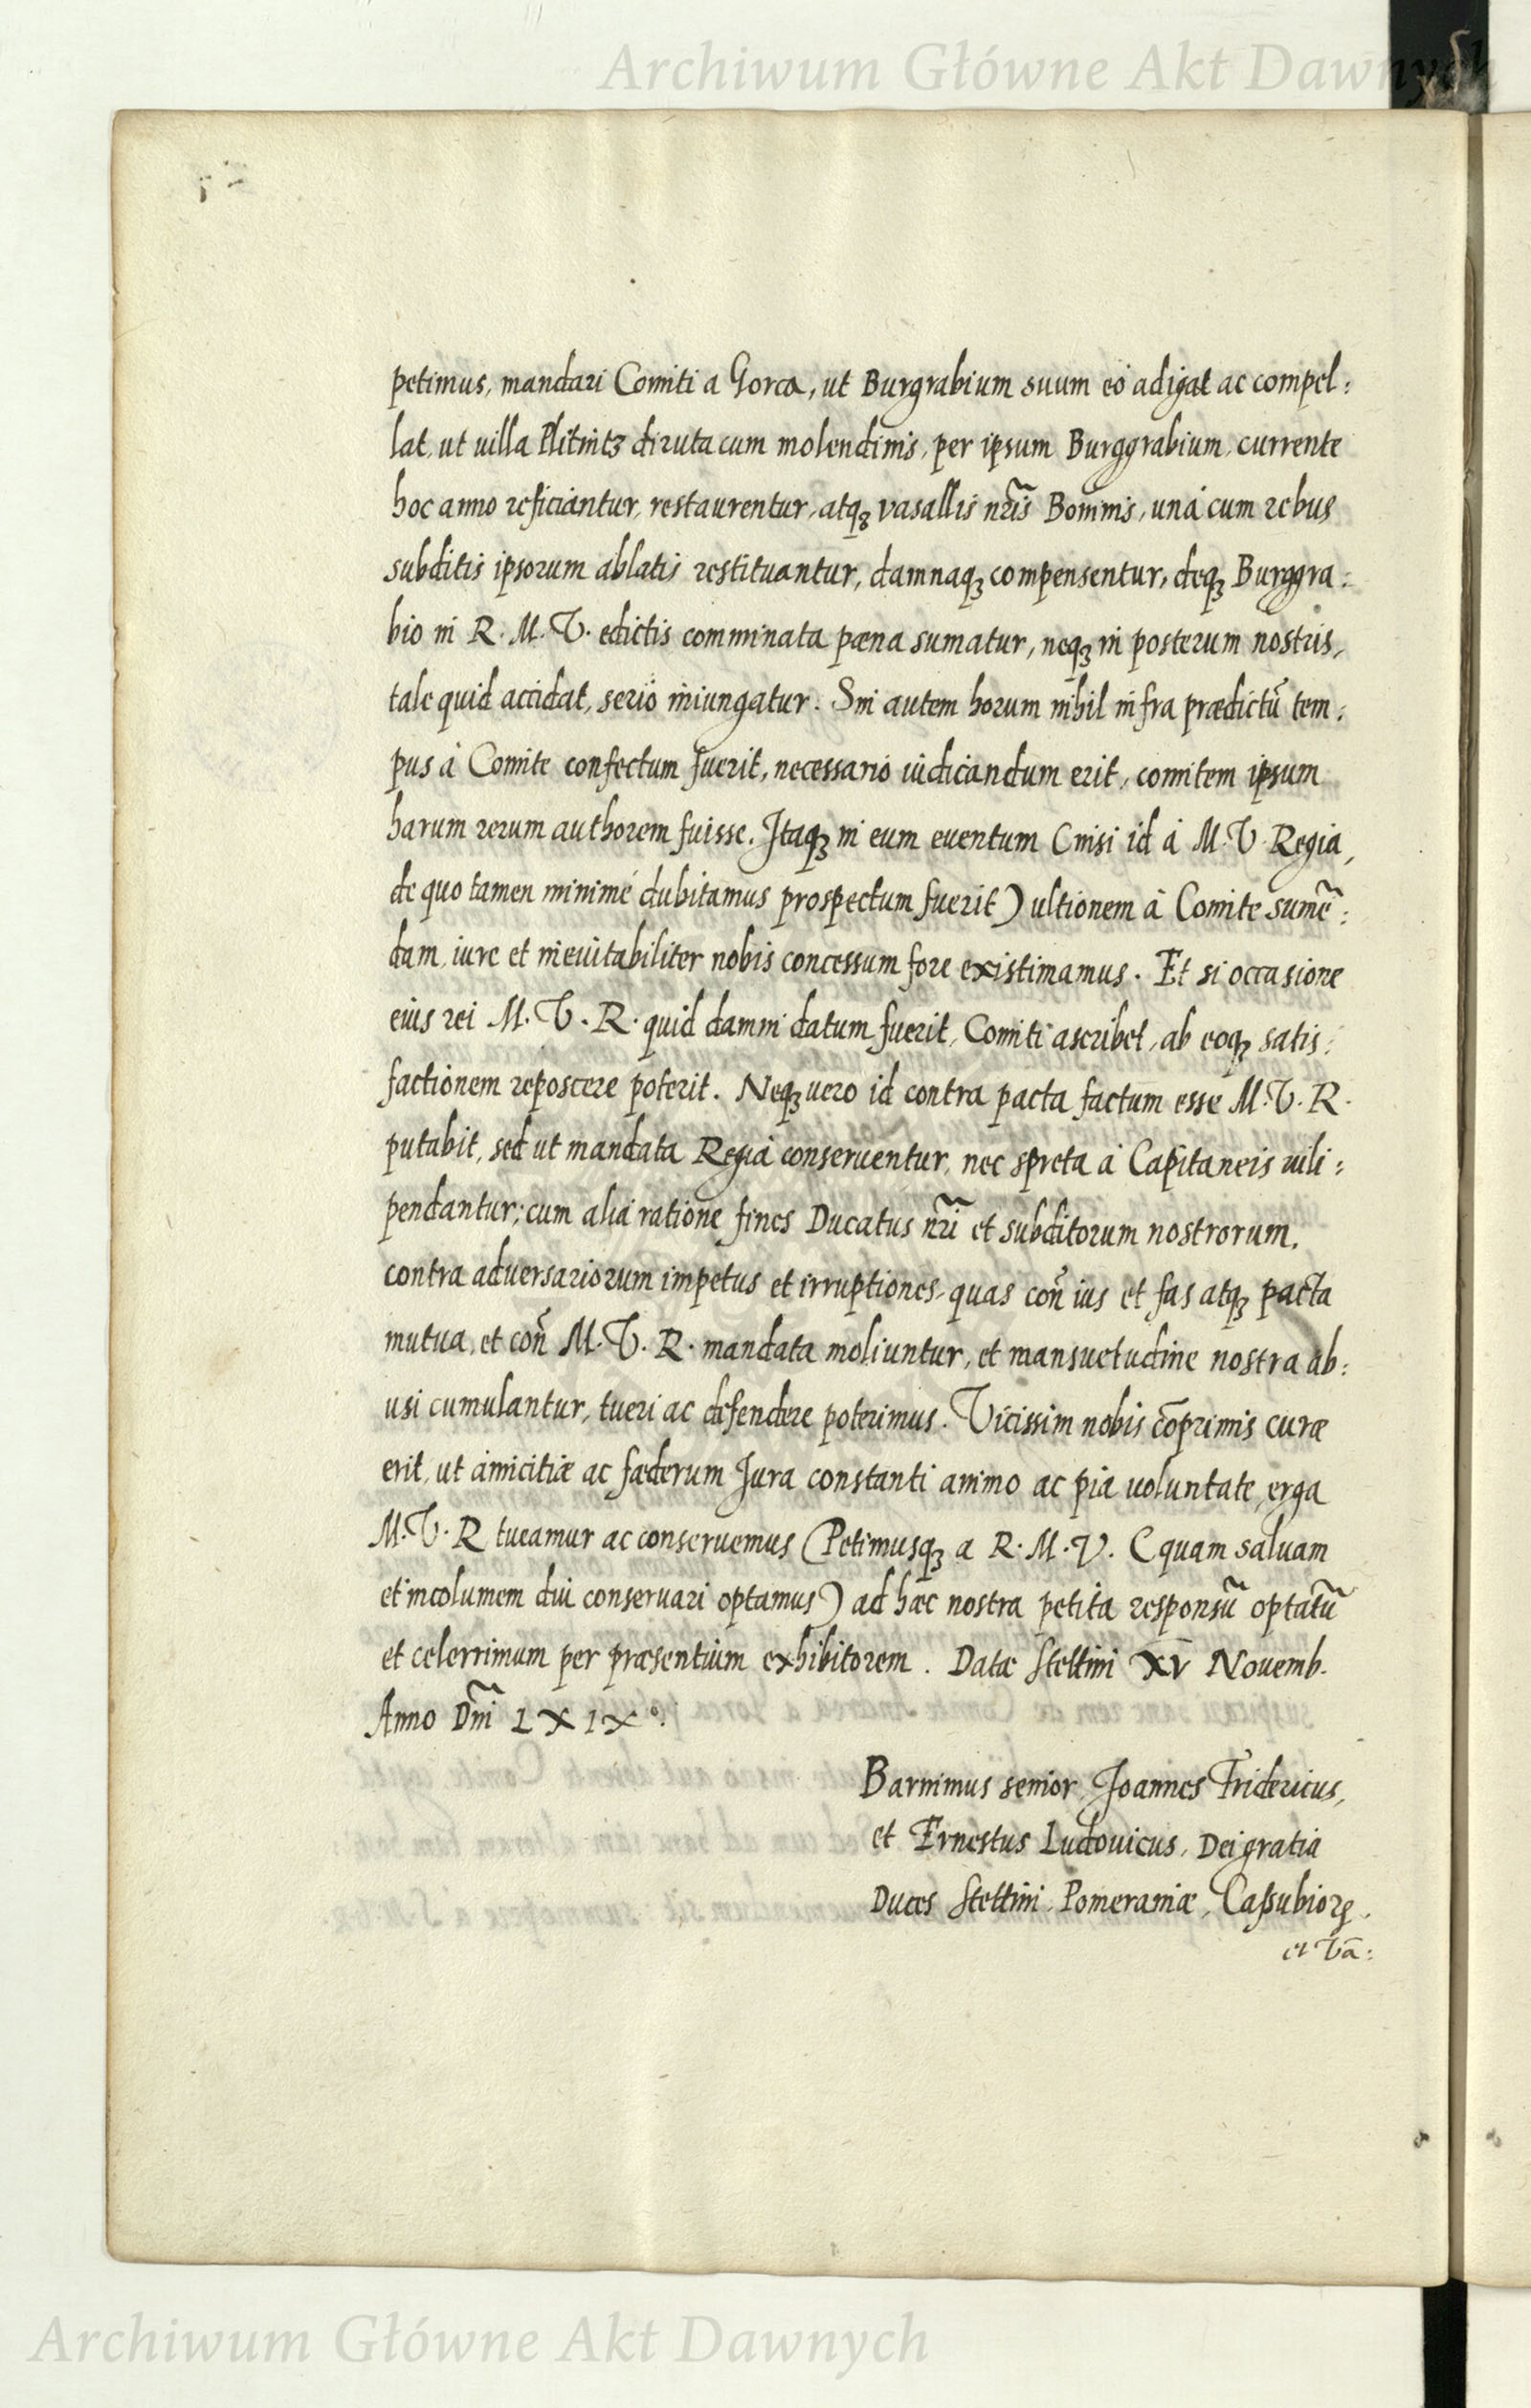 Archiwum Główne Akt Dawnych
petimus, mandari Comiti a Gorca, ut Burgrabium suum eò adigat ac compel:
lat, ut uilla Plitnitz diruta cum molendinis, per ipsum Burggrabium, currente
hoc anno reficiantur, restaurentur, atqȝ vasallis nr̃is Bonnnis, unà cum rebus
subditis ipsorum ablatis restituantur, damnaqȝ compensentur, deqȝ Burggra:
bio in R. M. V. edictis comminata pœna sumatur, neqȝ in posterum nostris,
tale quid accidat, seriò iniungatur. Sin autem horum nihil infra prædictũ tem:
pus à Comite confectum fuerit, necessariò iudicandum erit, comitem ipsum
harum rerum authorem fuisse. Itaqȝ in eum euentum (nisi id à M. V. Regia,
de quo tamen minimè dubitamus prospectum fuerit) ultionem à Comite sumẽ:
dam, iure et ineuitabiliter nobis concessum fore existimamus. Et si occasione
eius rei M. V. R. quid damni datum fuerit, Comiti ascribet, ab eoqȝ satis:
factionem reposcere poterit. Neqȝ uero id contra pacta factum esse M. V. R.
putabit, sed ut mandata Regia conseruentur, nec spreta à Capitaneis uili:
pendantur; cum alia ratione fines Ducatus nr̃i et subditorum nostrorum,
contra aduersariorum impetus et irruptiones, quas coñ ius et fas atqȝ pacta
mutua, et coñ M. V. R. mandata moliuntur, et mansuetudine nostra ab:
usi cumulantur, tueri ac defendere poterimus. Vicissim nobis cõprimis curæ
erit, ut amicitiæ ac fœderum Jura constanti animo ac pia uoluntate, erga
M. V. R tueamur ac conseruemus (Petimusqȝ a R. M. V. (quam saluam
et incolumem diu conseruari optamus) ad hæc nostra petita responsũ optatũ
et celerrimum per præsentium exhibitorem. Datæ Stettini XV Nouemb.
Anno Dñi LXIX°.
Barnimus senior, Joannes Fridericus,
et Ernestus Ludouicus, Dei gratia
Duces Stettini, Pomeraniæ, Caſsubiorꝝ,
et Vã:
Archiwum Główne Akt Dawnych